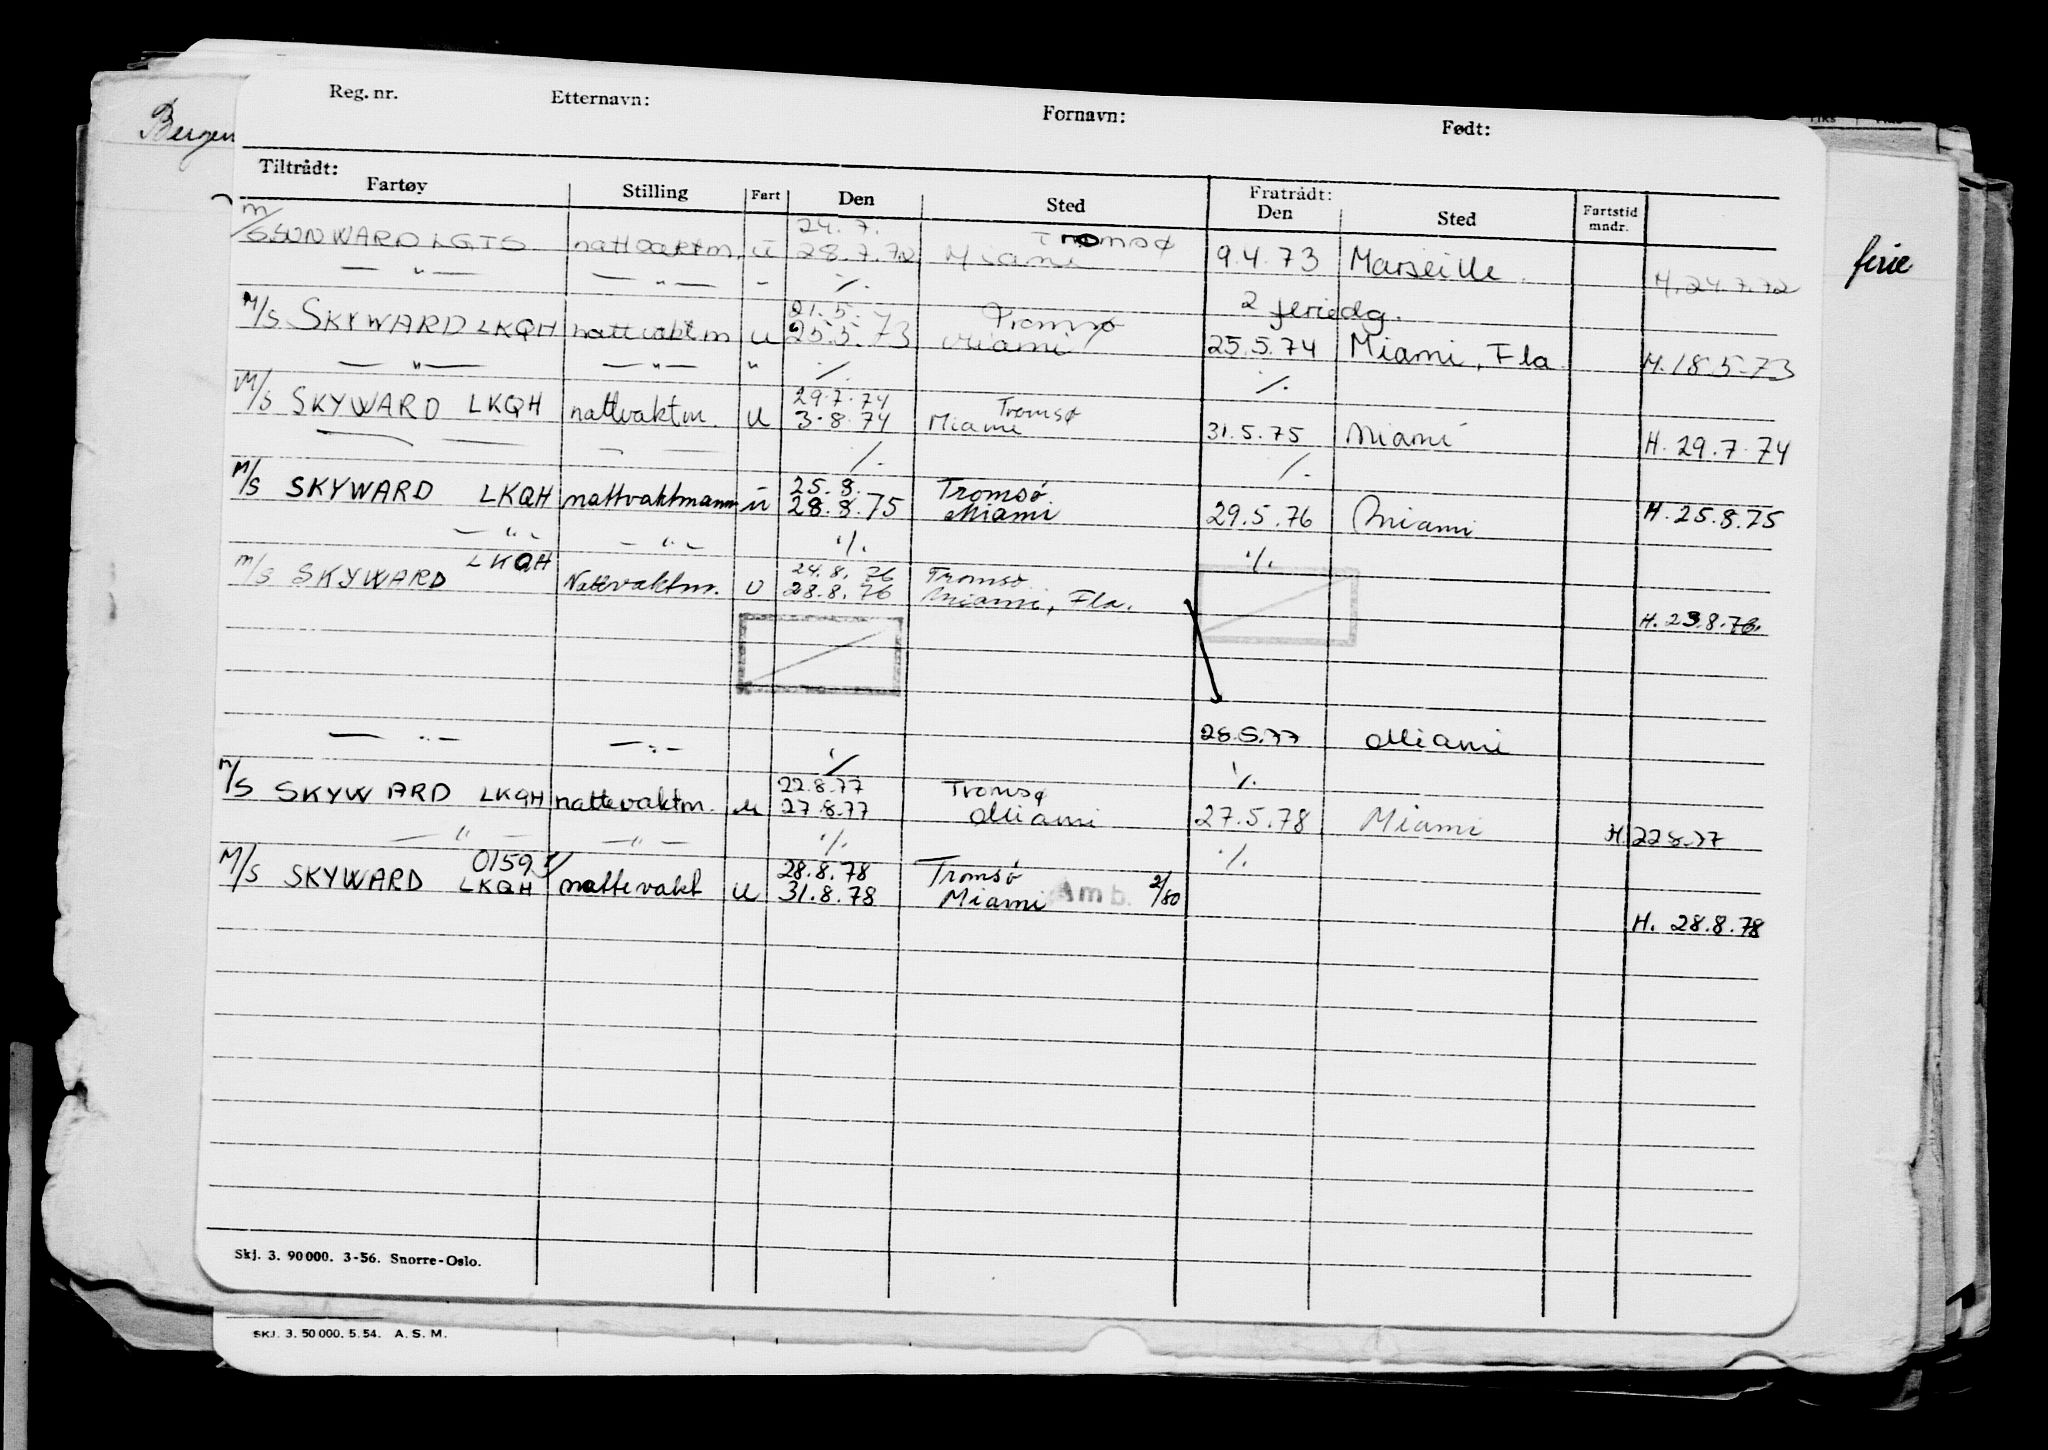 Reg. nr. Etternavn: Fornavn: Født:
Bergen
Tiltrådt: Fratrådt:
Fartøy Stilling Fart Den Sted Den Sted Fartstid mndr.
24.7. Tromsø
M/S SUNWARD LGTS nattvaktm. U 28.7.72 Miami 9.4.73 Marseille. H. 24.7.72
ferie
— " — — " — " ·/.
21.5. Tromsø 2 feriedg.
M/S SKYWARD LKQH nattvaktm U 25.5.73 Miami 25.5.74 Miami, Fla H. 18.5.73
— " — — " — " ·/. ·/.
29.7.74 Tromsø
M/S SKYWARD LKQH nattvaktm. U 3.8.74 Miami 31.5.75 Miami H. 29.7.74
— — — — ·/. ·/.
25.8. Tromsø
M/S SKYWARD LKQH nattvaktmann U 28.8.75 Miami 29.5.76 Miami H. 25.8.75
— " — — " — ·/. ·/.
LKQH 24.8.76 Tromsø
M/S SKYWARD Nattvaktm. U 28.8.76 Miami, Fla. H. 23.8.76.
28.5.77 Miami
— " — — " — ·/. ·/.
22.8.77 Tromsø
M/S SKYWARD LKQH nattevaktm. U 27.8.77 Miami 27.5.78 Miami H. 22.8.77
— " — — " — ·/. ·/.
0159 28.8.78 Tromsø
M/S SKYWARD LKQH nattevakt U 31.8.78 Miami Amb. 2/80 H. 28.8.78
Skj. 3. 90000. 3-56. Snorre-Oslo.
SKJ. 3. 50000. 5.54. A. S. M.